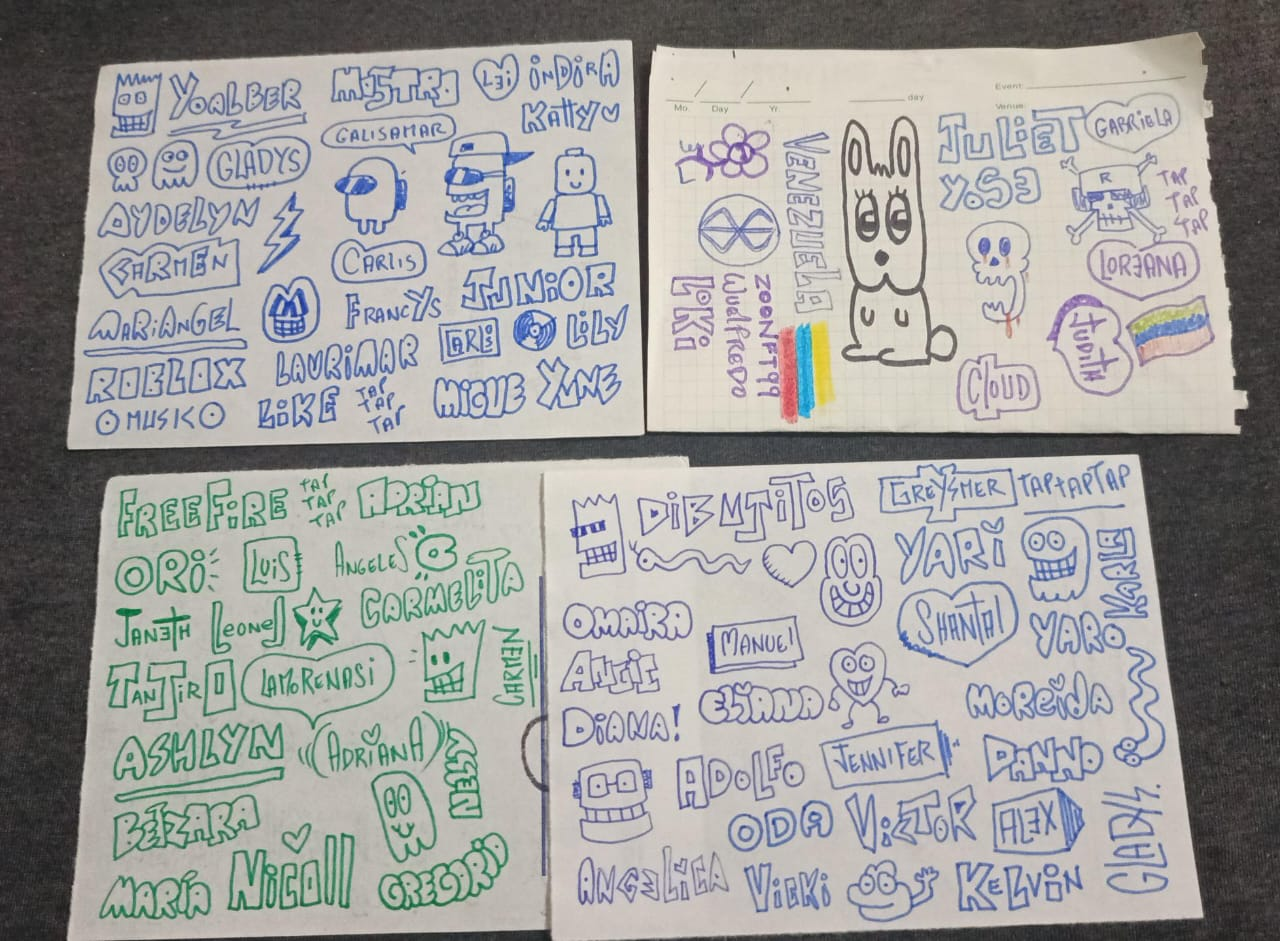 YOALBER
MOSTRO
LEI
INDIRA
KATTY
GALISAMAR
GLADYS
AYDELYN
CARMEN
CARLIS
MARIANGEL
FRANCYS
JUNIOR
CARLI
LILY
ROBLOX
LAURIMAR
MUSIC
LIKE
TAP
TAP
TAP
MIGUE
YUNE
Mo. Day Yr.
day
Event:
Venue:
VENEZUELA
JULIET
GABRIELA
YOSE
R
TAP
TAP
TAP
LOREANA
ZOONFT99
WUILFREDO
LOKI
JUDITH
CLOUD
FREE FIRE
TAP
TAP
TAP
ADRIAN
ORI
LUIS
ANGELES C
CARMELITA
JANETH
LEONEL
TANJIRO
LAMORENASI
CARMEN
ASHLYN
ADRIANA
NELLY
BETZARA
MARÍA
NICOLL
GREGORIO
DIBUJITOS
GREYSMER
TAP TAP TAP
YARI
KARLA
OMAIRA
MANUEL
SHANTAL
YARO
ANGIE
ELIANA
MOREIDA
DIANA!
ADOLFO
JENNIFER
DANNO
ODA
VICTOR
ALEX
GLADYS.
ANGELICA
VICKI
KELVIN